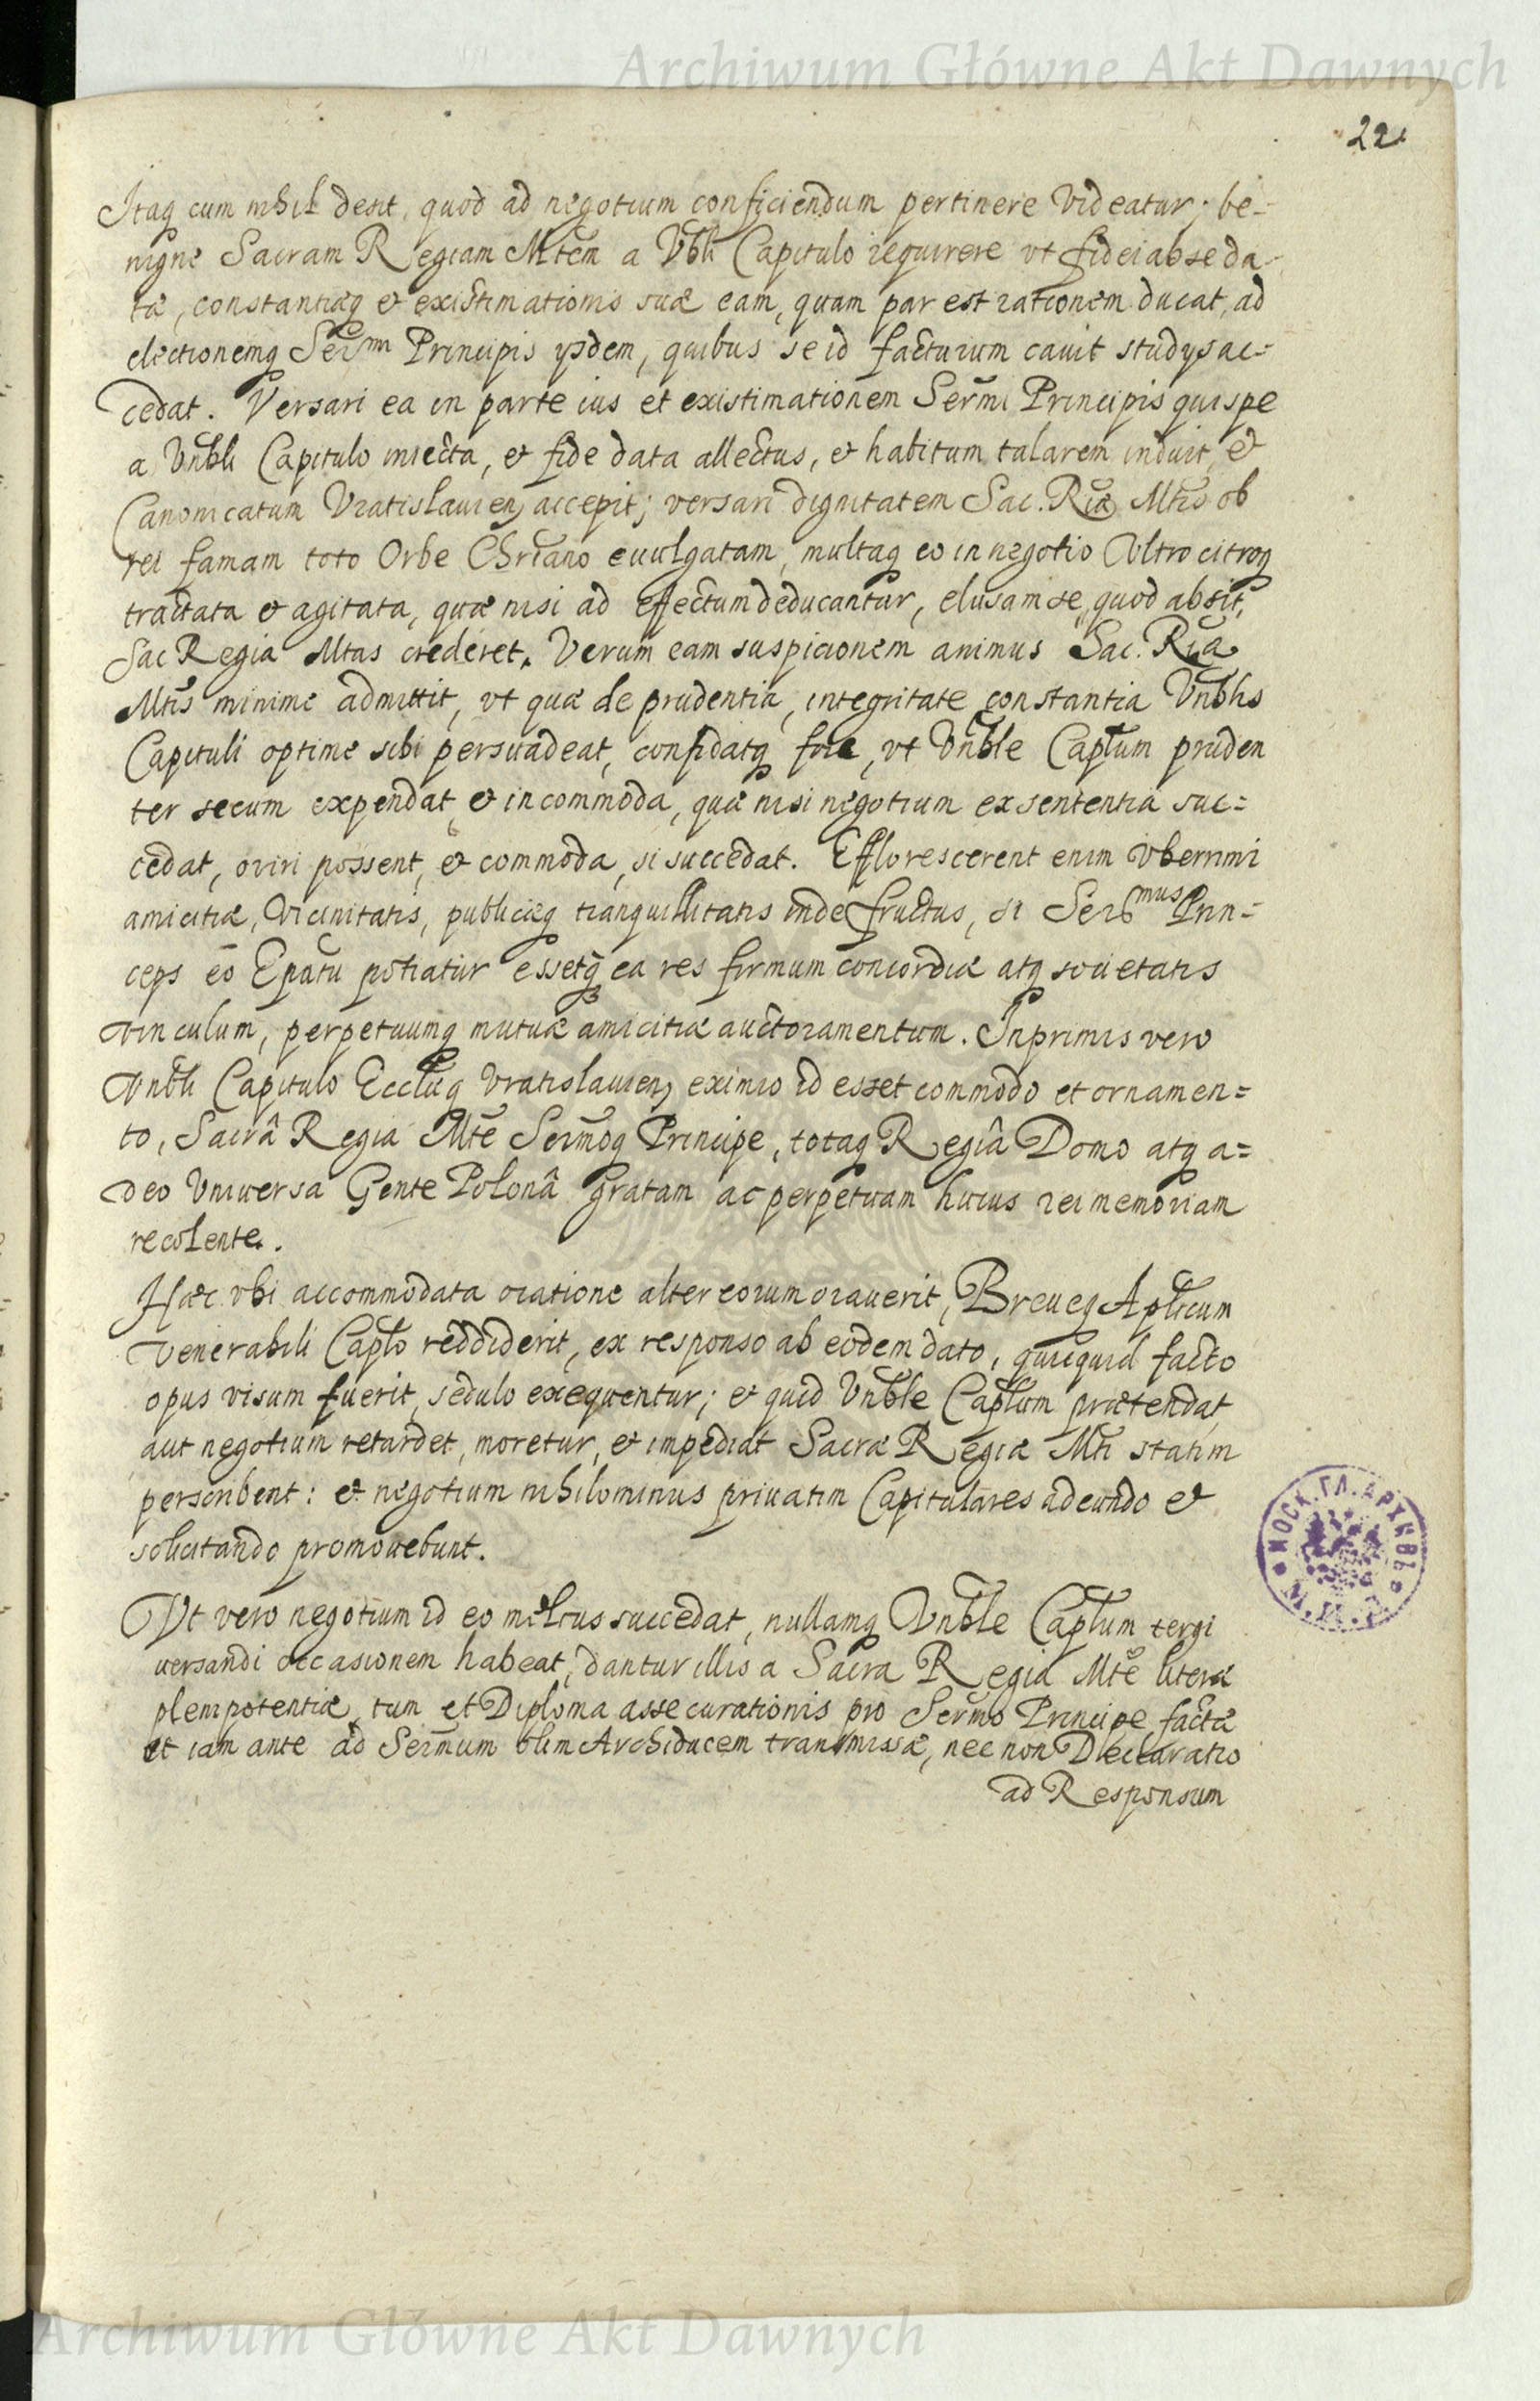 Archiwum Główne Akt Dawnych
22
Itaq cum nihil desit, quod ad negotium conficiendum pertinere videatur; be-
nigne Sacram Regiam Mtem a Vbli Capitulo requirere vt fidei ab se da-
tæ, constantiæq et existimationis suæ eam, quam par est rationem ducat, ad
electionemq Sermi Principis ysdem, quibus se id facturum cauit studys ac=
cedat. Versari ea in parte ius et existimationem Sermi Principis qui spe
a Vnbli Capitulo iniecta, et fide data allectus, et habitum talarem induit, et
Canonicatum Vratislauien, accepit; versari dignitatem Sac. Riæ Mtis ob
rei famam toto Orbe Chriano euulgatam, multaq eo in negotio Vltro citroq
tractata et agitata, quæ nisi ad effectum deducantur, elusam se, quod absit,
Sac Regia Mtas crederet. Verum eam suspicionem animus Sac. Riæ
Mtis minime admittit, vt quæ de prudentia, integritate constantia Vnblis
Capituli optime sibi persuadeat, confidatq fore, vt Vnble Captum pruden
ter secum expendat et incommoda, quæ nisi negotium ex sententia suc=
cedat, oriri possent, et commoda, si succedat. Efflorescerent enim vberrimi
amicitiæ, Vicinitatis, publicæq tranquillitatis inde fructus, si Sermus Prin=
ceps eo Epatu potiatur essetq ea res firmum concordiæ atq societatis
vinculum, perpetuumq mutuæ amicitiæ auctoramentum. Inprimis vero
Vnbli Capitulo Eccliæq Vratislauien, eximio id esset commodo et ornamen=
to, Sacrâ Regia Mte Sermoq Principe, totaq Regiâ Domo atq a=
deo Vniuersa Gente Polonâ gratam ac perpetuam huius rei memoriam
recolente.
Hæc vbi accommodata oratione alter eorum orauerit, Breueq Aplicum
Venerabili Caplo reddiderit, ex responso ab eodem dato, quicquid facto
opus visum fuerit, sedulo exequentur; et quid Vnble Caplum prætendat
aut negotium retardet, moretur, et impediat Sacræ Regiæ Mti statim
perscribent: et negotium nihilominus priuatim Capitulares adeundo et
solicitando promouebunt.
Vt vero negotium id eo melius succedat, nullamq Vnble Caplum tergi
uersandi occasionem habeat, dantur illis a Sacra Regia Mte literæ
plenipotentiæ, tum et Diploma assecurationis pro Sermo Principe factæ
et iam ante ad Sermum olim Archiducem transmissæ, nec non Declaratio
ad Responsum
МОСК. ГЛ. АРХИВЪ
Archiwum Główne Akt Dawnych